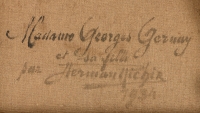 Madame Georges Gernay
et sa fille
par Herman Richir
1934